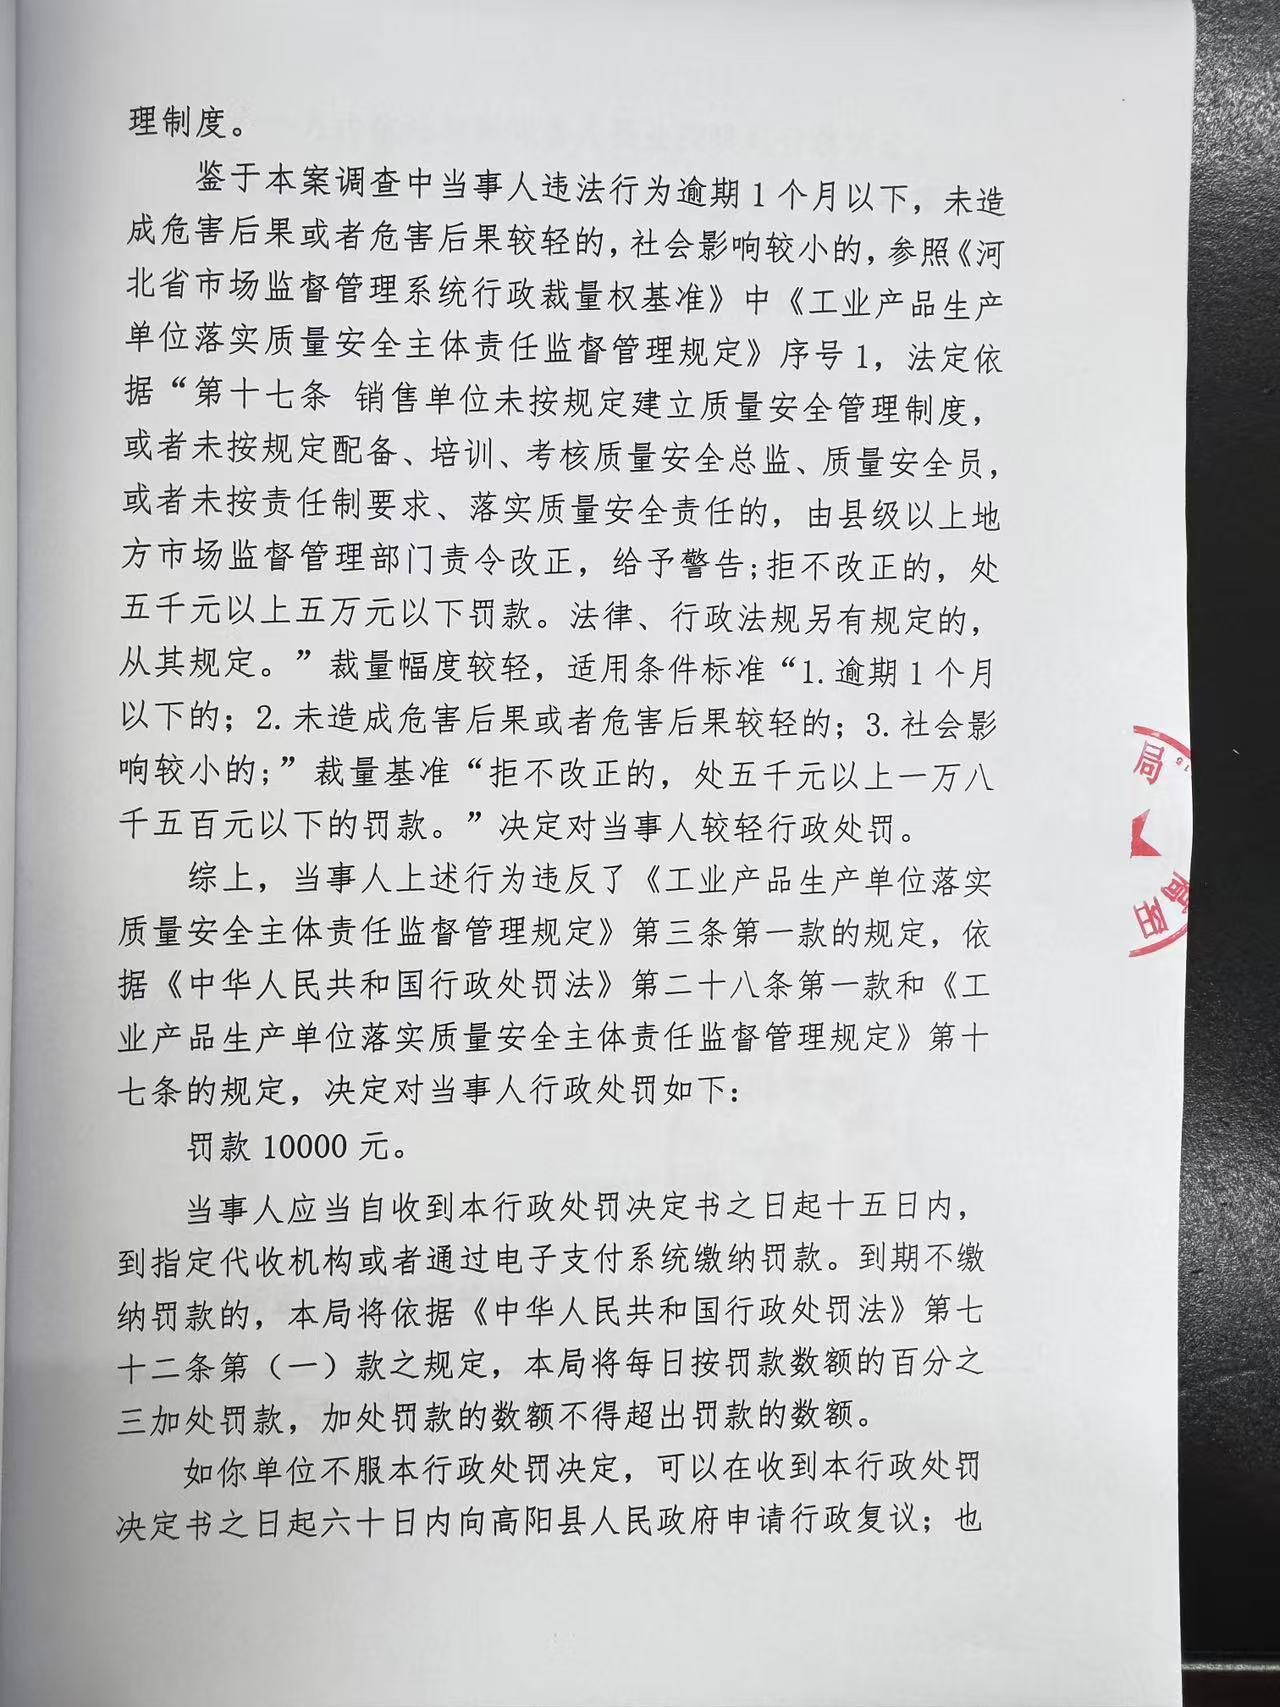 理制度。
鉴于本案调查中当事人违法行为逾期1个月以下，未造
成危害后果或者危害后果较轻的，社会影响较小的，参照《河
北省市场监督管理系统行政裁量权基准》中《工业产品生产
单位落实质量安全主体责任监督管理规定》序号1，法定依
据“第十七条 销售单位未按规定建立质量安全管理制度，
或者未按规定配备、培训、考核质量安全总监、质量安全员，
或者未按责任制要求、落实质量安全责任的，由县级以上地
方市场监督管理部门责令改正，给予警告;拒不改正的，处
五千元以上五万元以下罚款。法律、行政法规另有规定的，
从其规定。”裁量幅度较轻，适用条件标准“1.逾期1个月
以下的；2.未造成危害后果或者危害后果较轻的；3.社会影
响较小的;”裁量基准“拒不改正的，处五千元以上一万八
千五百元以下的罚款。”决定对当事人较轻行政处罚。
综上，当事人上述行为违反了《工业产品生产单位落实
质量安全主体责任监督管理规定》第三条第一款的规定，依
据《中华人民共和国行政处罚法》第二十八条第一款和《工
业产品生产单位落实质量安全主体责任监督管理规定》第十
七条的规定，决定对当事人行政处罚如下：
罚款 10000 元。
当事人应当自收到本行政处罚决定书之日起十五日内，
到指定代收机构或者通过电子支付系统缴纳罚款。到期不缴
纳罚款的，本局将依据《中华人民共和国行政处罚法》第七
十二条第（一）款之规定，本局将每日按罚款数额的百分之
三加处罚款，加处罚款的数额不得超出罚款的数额。
如你单位不服本行政处罚决定，可以在收到本行政处罚
决定书之日起六十日内向高阳县人民政府申请行政复议；也
局
高阳